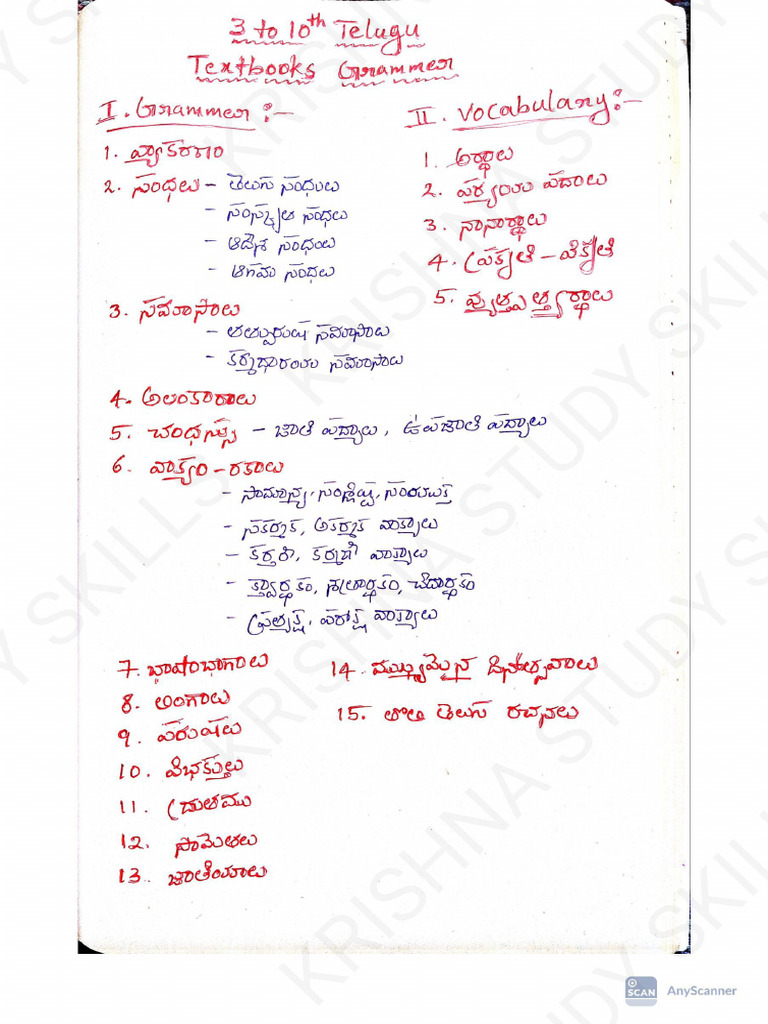 3 to 10th Telugu
Textbooks Grammer
I. Grammer :-
1. వ్యాకరణం
2. సంధులు - తెలుగు సంధులు
- సంస్కృత సంధులు
- ఆదేశ సంధులు
- ఆగమ సంధులు
3. సమాసాలు
- తత్పురుష సమాసాలు
- కర్మధారయ సమాసాలు
4. అలంకారాలు
5. చంధస్సు - జాతి పద్యాలు, ఉపజాతి పద్యాలు
6. వాక్యం - రకాలు
- సామాన్య, సంశ్లిష్ట, సంయుక్త
- సకర్మక, అకర్మక వాక్యాలు
- కర్తరి, కర్మణి వాక్యాలు
- క్త్వార్థకం, శత్రర్థకం, చేదార్థకం
- ప్రత్యక్ష, పరోక్ష వాక్యాలు
7. భాషాభాగాలు
8. లింగాలు
9. పురుషలు
10. విభక్తులు
11. ద్రుతము
12. సామెతలు
13. జాతీయాలు
II. Vocabulary :-
1. అర్థాలు
2. పర్యాయ పదాలు
3. నానార్థాలు
4. ప్రకృతి - వికృతి
5. వ్యుత్పత్త్యర్థాలు
14. ముఖ్యమైన దినోత్సవాలు
15. తొలి తెలుగు రచనలు
KRISHNA STUDY SKILLS
SCAN AnyScanner